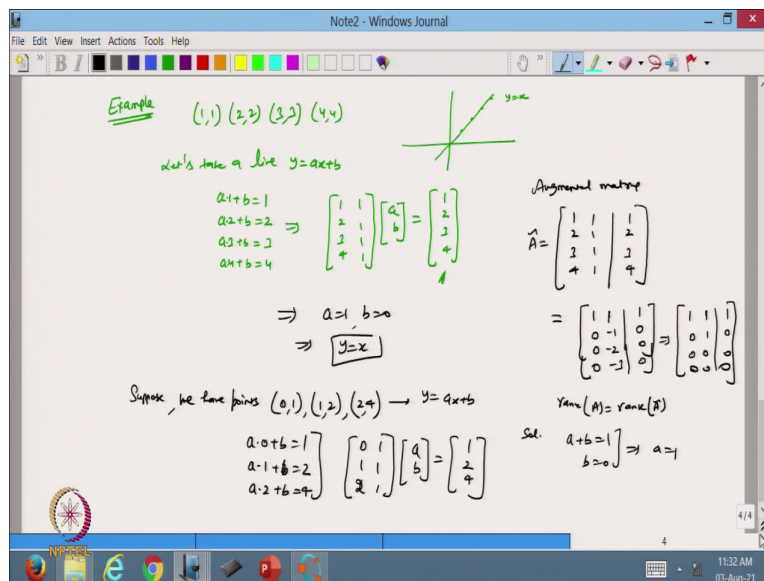 Note2 - Windows Journal
File Edit View Insert Actions Tools Help
B I
Example (1,1) (2,2) (3,3) (4,4)
y=x
Let's take a line y=ax+b
a·1+b=1
a·2+b=2
a·3+b=3
a·4+b=4
⇒ [1 1; 2 1; 3 1; 4 1] [a; b] = [1; 2; 3; 4]
⇒ a=1, b=0
⇒ y=x
Augmented matrix
Ã = [1 1 | 1; 2 1 | 2; 3 1 | 3; 4 1 | 4]
= [1 1 | 1; 0 -1 | 0; 0 -2 | 0; 0 -3 | 0] ⇒ [1 1 | 1; 0 1 | 0; 0 0 | 0; 0 0 | 0]
rank(A) = rank(Ã)
Sol. a+b=1
b=0 ] ⇒ a=1
Suppose, we have points (0,1), (1,2), (2,4) → y=ax+b
a·0+b=1
a·1+b=2
a·2+b=4
[0 1; 1 1; 2 1] [a; b] = [1; 2; 4]
NPTEL
4/4
4
11:32 AM
03-Aug-21